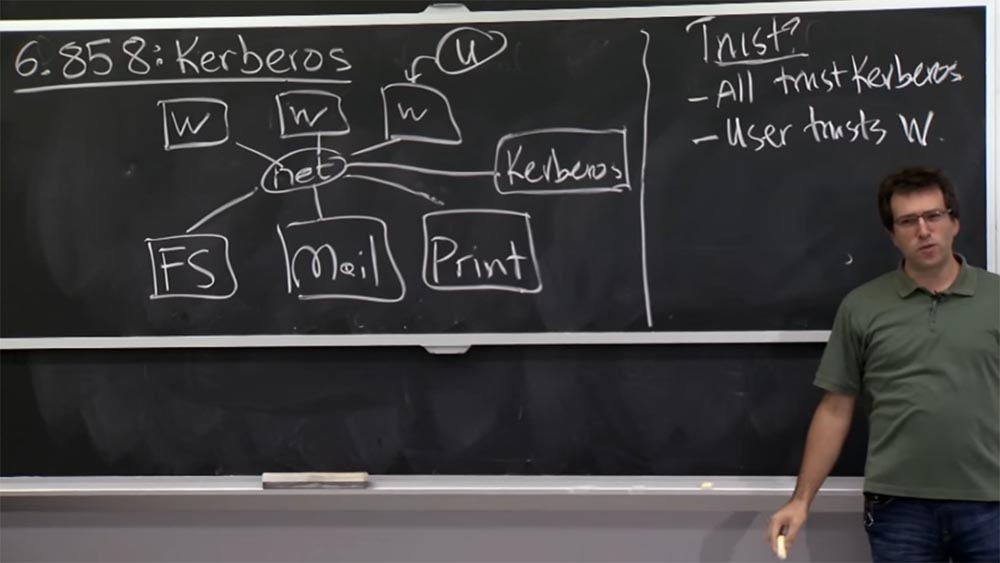 6.858: Kerberos
u
W
W
W
net
Kerberos
FS
Mail
Print
Trust?
- All trust Kerberos
- User trusts W.